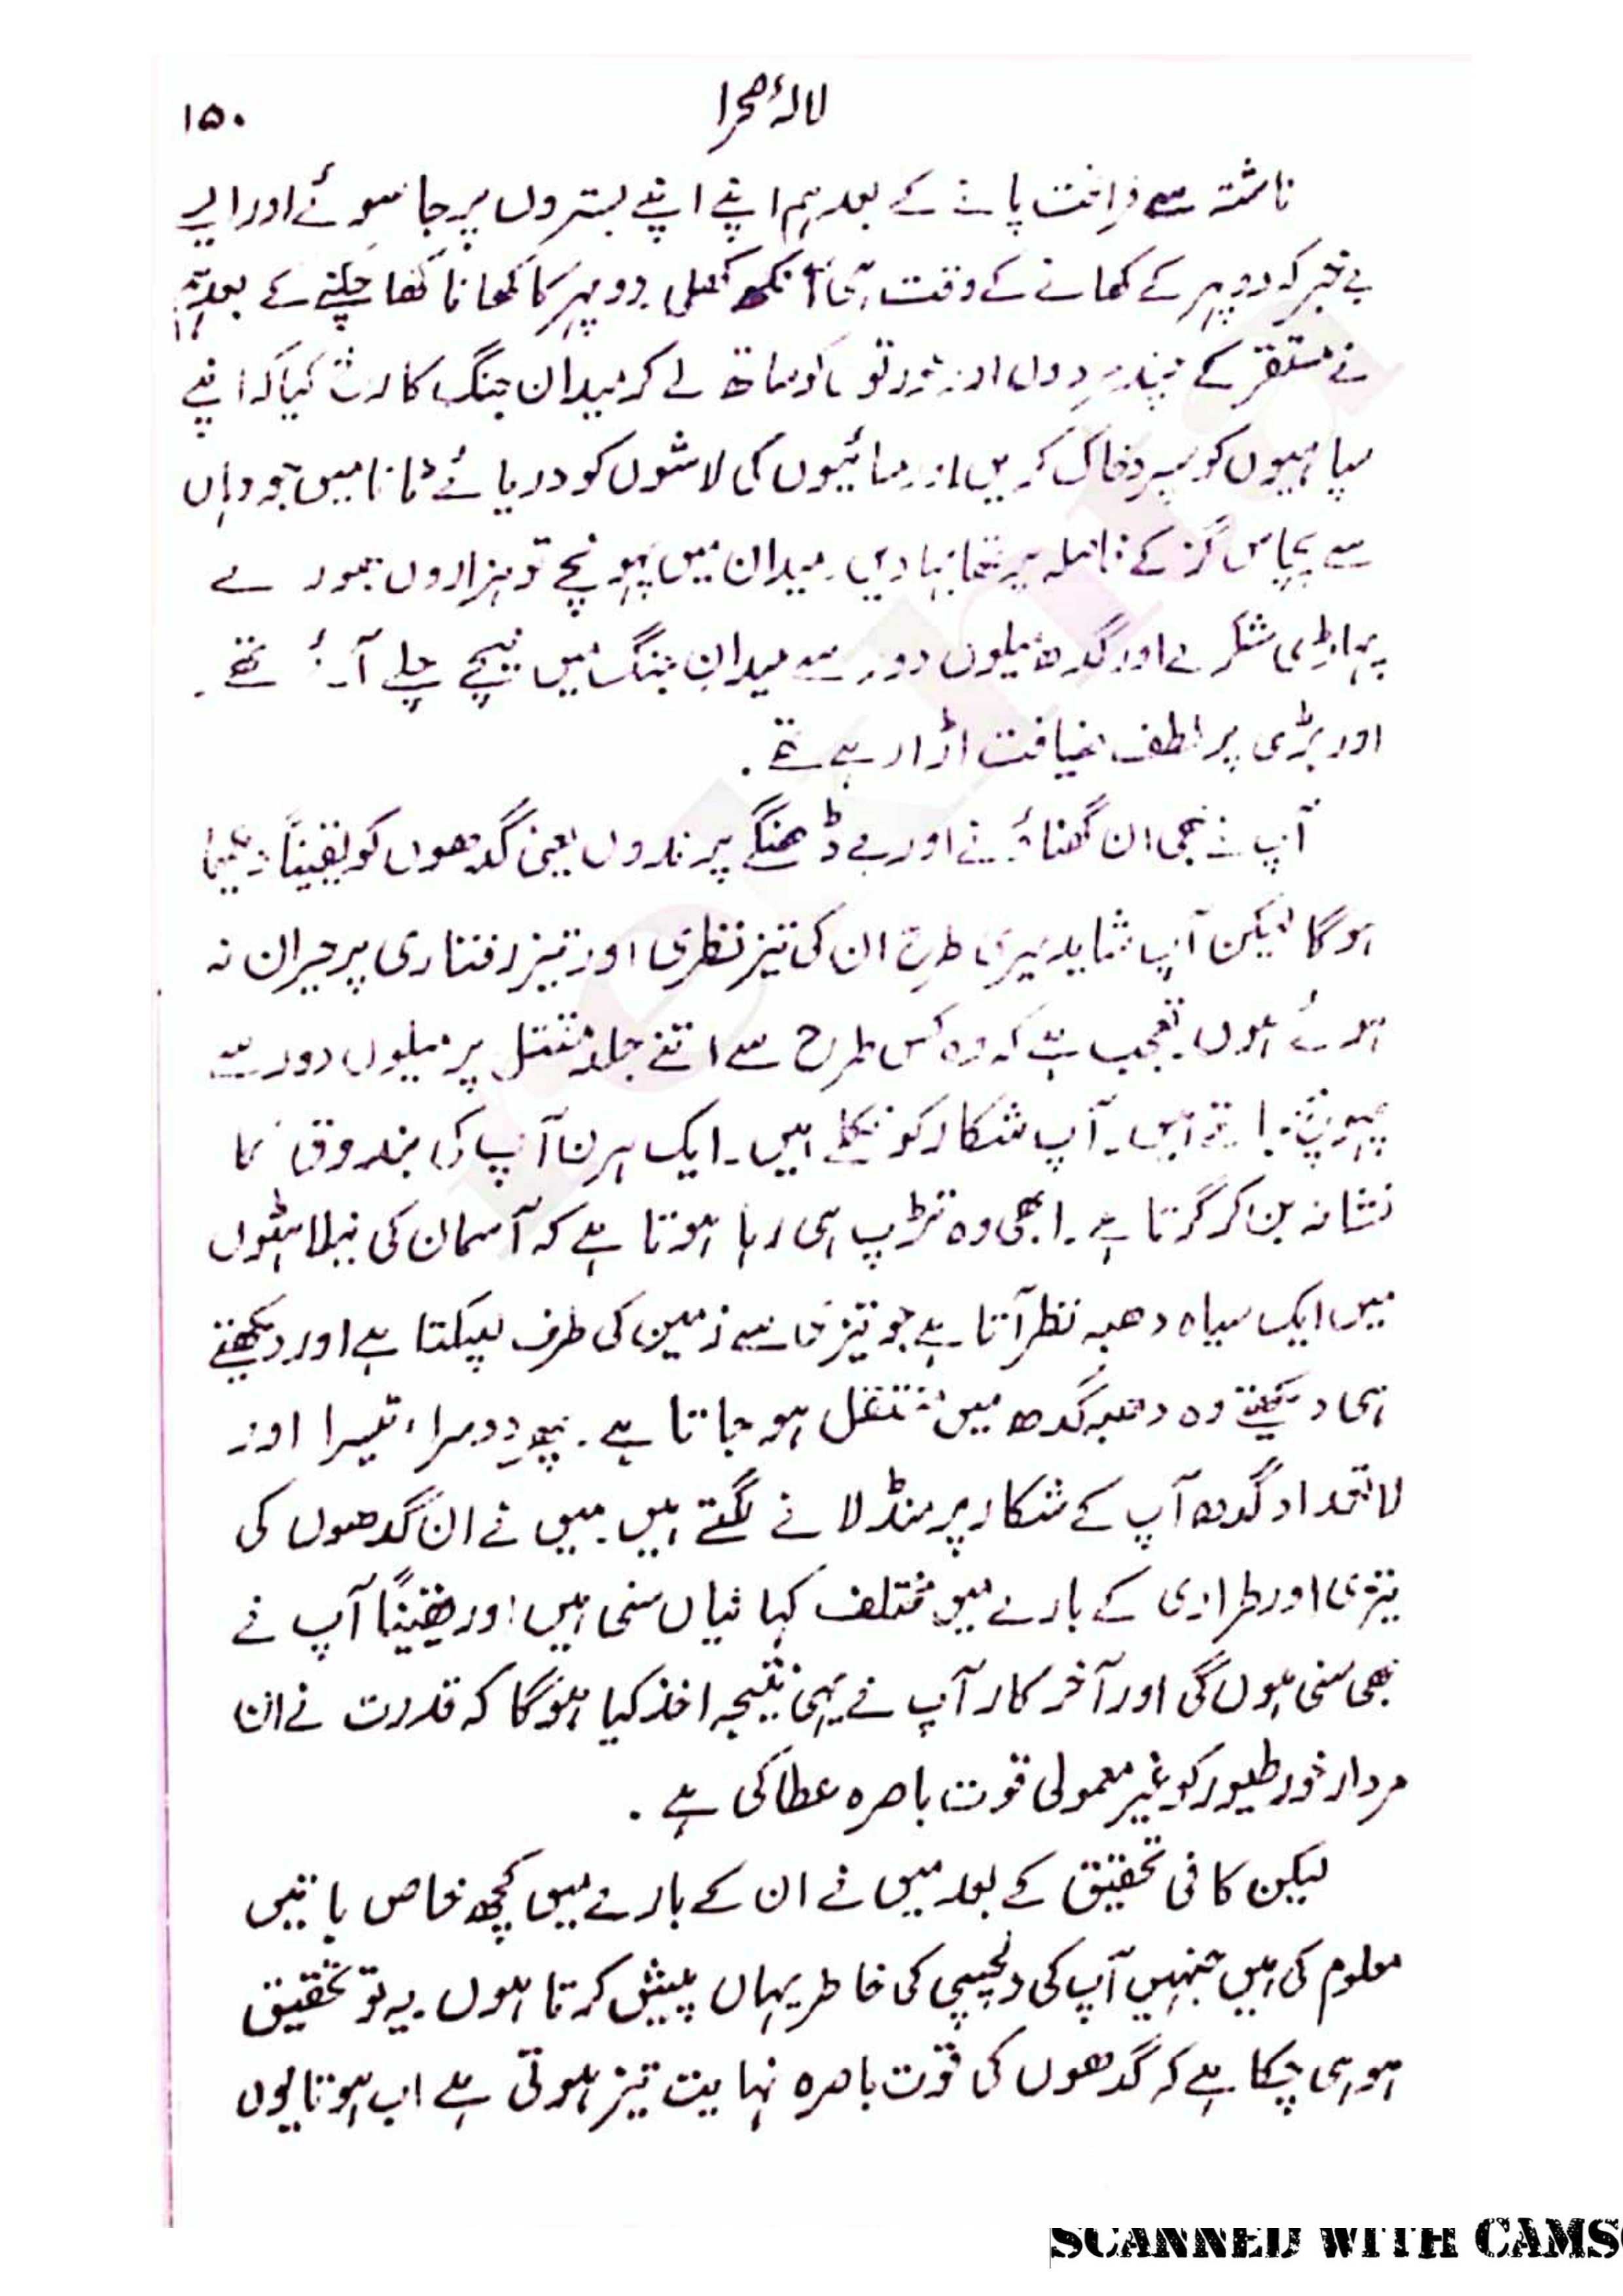 لالۂ صحرا
۱۵۰
ناشتہ سے فراغت پانے کے بعد ہم اپنے اپنے بستروں پر جا سوئے اور ایسے
بے خبر کہ دوپہر کے کھانے کے وقت ہی آنکھ کھلی۔ دوپہر کا کھانا کھا چکنے کے بعد ہم
نے مستقر کے چند مردوں اور عورتوں کو ساتھ لے کر میدان جنگ کا رخ کیا کہ اپنے
سپاہیوں کو سپرد خاک کریں اور مسائیوں کی لاشوں کو دریائے ٹانا میں جو وہاں
سے پچاس گز کے فاصلہ پر تھا بہا دیں۔ میدان میں پہونچے تو ہزاروں بھورے
پہاڑی شکرے اور گدھ میلوں دور سے میدانِ جنگ میں نیچے چلے آئے تھے۔
اور بڑی پر لطف ضیافت اڑا رہے تھے۔
آپ نے بھی ان گھناؤنے اور بے ڈھنگے پرندوں یعنی گدھوں کو یقیناً دیکھا
ہوگا لیکن آپ شاید میری طرح ان کی تیز نظری اور تیز رفتاری پر حیران نہ
ہوئے ہوں۔ تعجب ہے کہ وہ کس طرح سے اتنے جلد مقتل پر میلوں دور سے
پہونچ جاتے ہیں۔ آپ شکار کو نکلے ہیں۔ ایک ہرن آپ کی بندوق کا
نشانہ بن کر گرتا ہے۔ ابھی وہ تڑپ ہی رہا ہوتا ہے کہ آسمان کی نیلاہٹوں
میں ایک سیاہ دھبہ نظر آتا ہے جو تیزی سے زمین کی طرف لپکتا ہے اور دیکھتے
ہی دیکھتے وہ دھبہ گدھ میں منتقل ہو جاتا ہے۔ پھر دوسرا، تیسرا اور
لاتعداد گدھ آپ کے شکار پر منڈلانے لگتے ہیں۔ میں نے ان گدھوں کی
تیزی اور طراری کے بارے میں مختلف کہانیاں سنی ہیں اور یقیناً آپ نے
بھی سنی ہوں گی اور آخر کار آپ نے یہی نتیجہ اخذ کیا ہوگا کہ قدرت نے ان
مردار خور طیور کو غیر معمولی قوت باصرہ عطا کی ہے۔
لیکن کافی تحقیق کے بعد میں نے ان کے بارے میں کچھ خاص باتیں
معلوم کی ہیں جنہیں آپ کی دلچسپی کی خاطر یہاں پیش کرتا ہوں۔ یہ تو تحقیق
ہو ہی چکا ہے کہ گدھوں کی قوت باصرہ نہایت تیز ہوتی ہے اب ہوتا یوں
SCANNED WITH CAMS